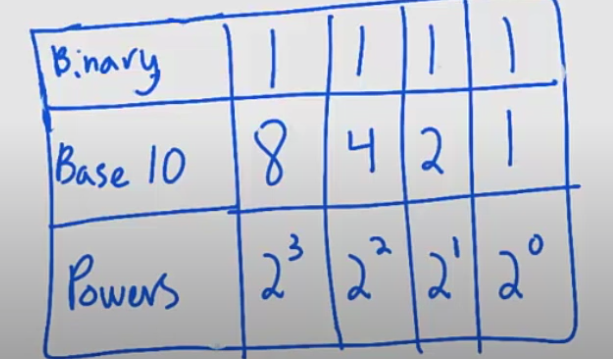 Binary 1 1 1 1
Base 10 8 4 2 1
Powers 2³ 2² 2¹ 2⁰